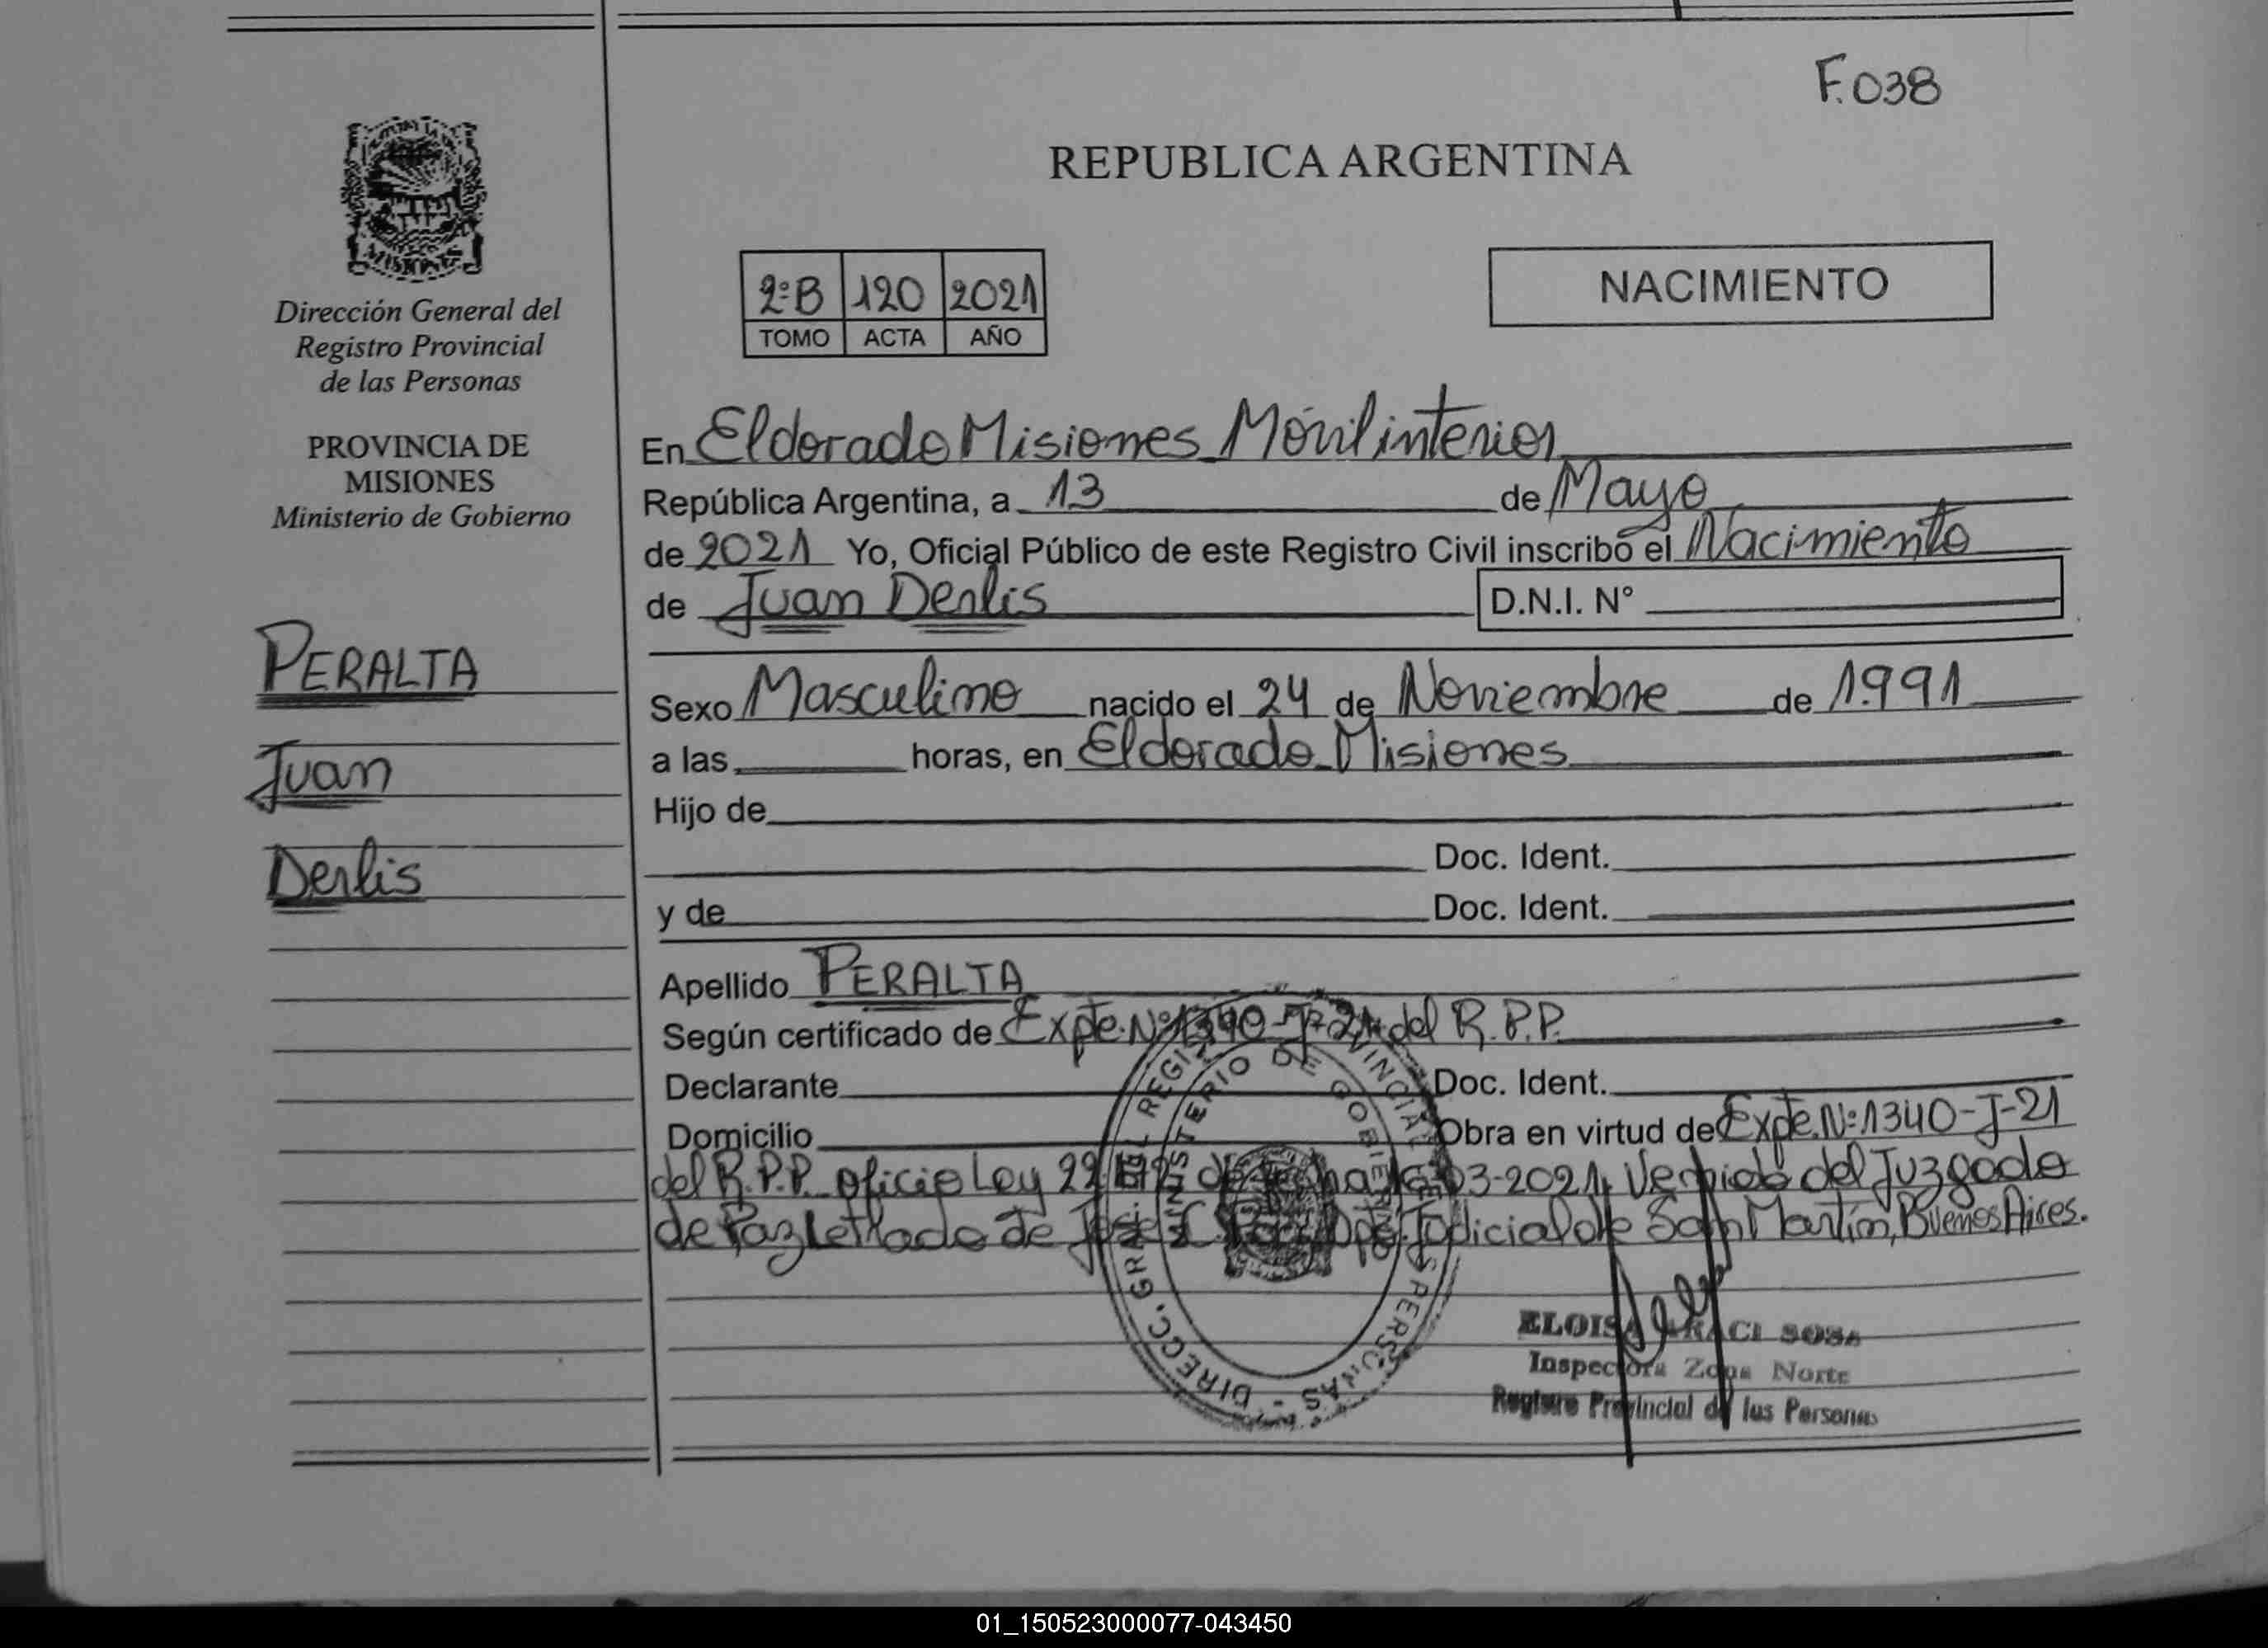 F.038
REPUBLICA ARGENTINA
MISIONES
Dirección General del
Registro Provincial
de las Personas
PROVINCIA DE
MISIONES
Ministerio de Gobierno
PERALTA
Juan
Derlis
2ºB 120 2021
TOMO ACTA AÑO
NACIMIENTO
En Eldorado Misiones Móvil interior
República Argentina, a 13 de Mayo
de 2021 Yo, Oficial Público de este Registro Civil inscribo el Nacimiento
de Juan Derlis D.N.I. N°
Sexo Masculino nacido el 24 de Noviembre de 1.991
a las horas, en Eldorado Misiones
Hijo de
Doc. Ident.
y de Doc. Ident.
Apellido PERALTA
Según certificado de Expte. Nº1340-J-21 del R.P.P.
Declarante Doc. Ident.
Domicilio Obra en virtud de Expte. Nº:1340-J-21
del R.P.P. Oficio Ley 03-2021, Venido del Juzgado
de Paz Letrado de Jose C. Paz Dpto. Judicial de San Martín, Buenos Aires.
DIRECC. GRAL. DEL REGISTRO PROVINCIAL DE LAS PERSONAS -
MINISTERIO DE GOBIERNO
ELOISA ARACI SOSA
Inspectora Zona Norte
Registro Provincial de las Personas
01_150523000077-043450